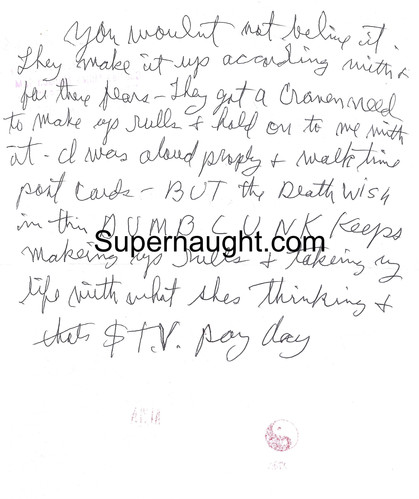 You wouldnt not belive it.
They make it up according with &
for there fears - They got a Craven need
to make up rulls & hold on to me with
it - I was aloud proply & walk time
post Cards - BUT the Death Wish
in this DUMB CLUNK Keeps
Supernaught.com
makeing up rules & takeing my
life with what shes thinking &
thats $ T.V. pay day